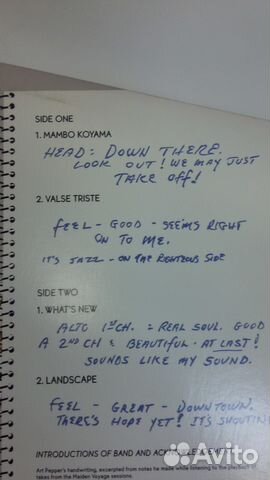 SIDE ONE
1. MAMBO KOYAMA
HEAD: DOWN THERE.
LOOK OUT! WE MAY JUST
TAKE OFF!
2. VALSE TRISTE
FEEL - GOOD - SEEMS RIGHT
ON TO ME.
IT'S JAZZ - ON THE RIGHTEOUS SIDE
SIDE TWO
1. WHAT'S NEW
ALTO 1ST CH. = REAL SOUL. GOOD
A 2ND CH & BEAUTIFUL - AT LAST!
SOUNDS LIKE MY SOUND.
2. LANDSCAPE
FEEL - GREAT - DOWNTOWN.
THERE'S HOPE YET! IT'S SHOUTIN
INTRODUCTIONS OF BAND AND
Art Pepper's handwriting, excerpted from notes he made while listening to the playback of
takes from the Maiden Voyage sessions.
Avito